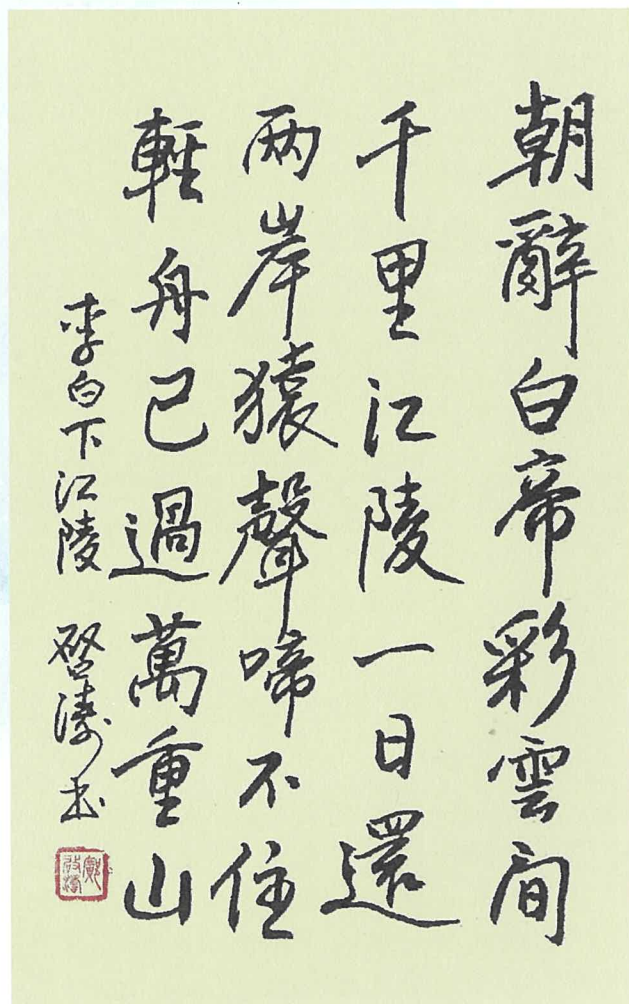 朝辭白帝彩雲間
千里江陵一日還
兩岸猿聲啼不住
輕舟已過萬重山
李白下江陵 啓濤书